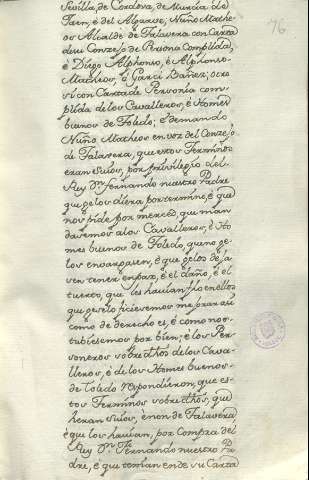 76
Sevilla, de Cordova, de Murcia de
Jaen, é del Algarve, Nuño Mathe-
os Alcalde de Talavera con Carta
de su Conzejo de Persona Complida,
é Diego Alphonso, é Alphonso
Matheos, é Garci Ibañez, otro
si con Carta de Personia com-
plida de los Cavalleros, é Homes
buenos de Toledo; é demando
Nuño Matheos en voz del Conzejo
de Talavera, que estos Terminos
eran suios, por privilegio del
Rey Dn. Fernando nuestro Padre
que gelos diera por termino, é que
nos pide por merced, que man
davemos a los Cavalleros, é Ho-
mes buenos de Toledo, que no ge-
los embargasen, é que gelos deja-
sen tener en paz, é el daño, é el
tuerto, que les havian fho en ellos
que gelo ficiesemos mejorar asi
como de derecho es, é como nos
tubiesemos por bien; é los Per-
soneros sobredthos de los Cava-
lleros, é de los Homes buenos
de Toledo respondieron, que es-
tos Terminos sobredthos, que
heran suios, é non de Talavera
é que los havian, por Compra del
Rey Dn. Fernando nuestro Pa
dre, é que tenian ende su Carta